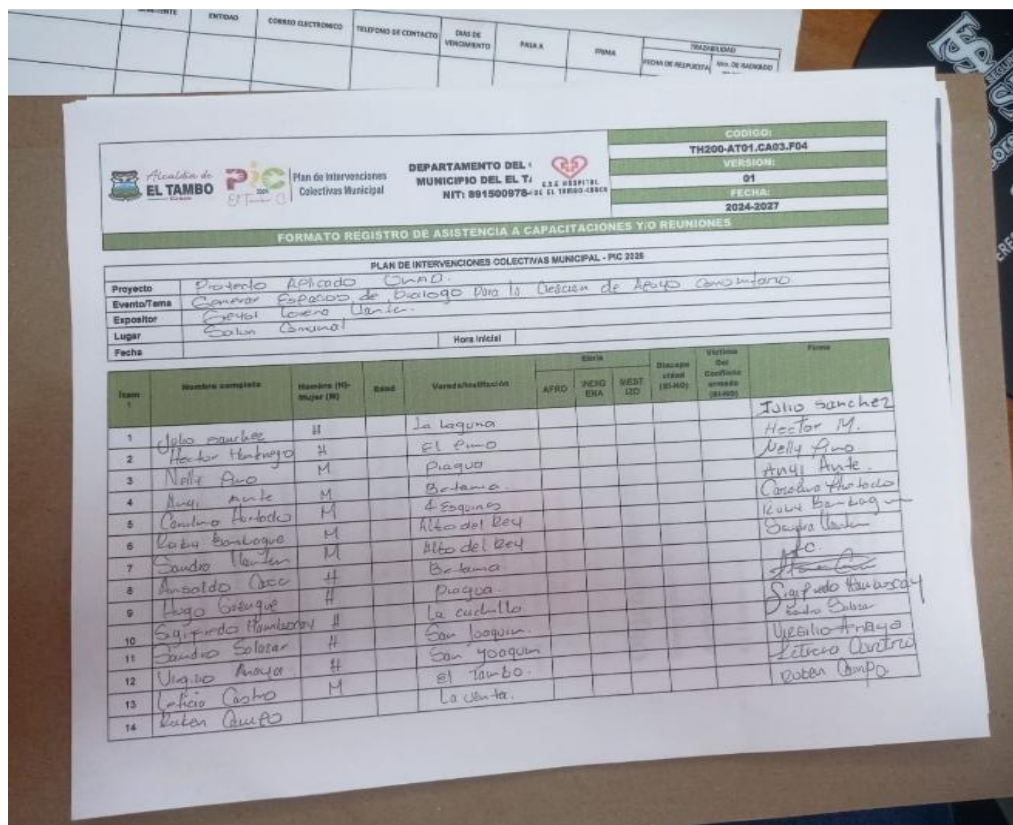 ENTIDAD CORREO ELECTRONICO TELEFONO DE CONTACTO DIAS DE VENCIMIENTO PASA A FIRMA TRAZABILIDAD
FECHA DE RESPUESTA Nro. DE RADICADO
CODIGO:
TH200-AT01.CA03.F04
VERSION:
01
FECHA:
2024-2027
Alcaldía de
EL TAMBO
PiC
El Tambo C
Plan de Intervenciones
Colectivas Municipal
DEPARTAMENTO DEL
MUNICIPIO DEL EL TA
NIT: 891500978-
E.S.E HOSPITAL
DE EL TAMBO-CAUCA
FORMATO REGISTRO DE ASISTENCIA A CAPACITACIONES Y/O REUNIONES
PLAN DE INTERVENCIONES COLECTIVAS MUNICIPAL - PIC 2025
Proyecto Proyecto Aplicado UNAD.
Evento/Tema Generar Espacios de Dialogo Para la Creacion de Apoyo Comunitario
Expositor Lorena
Lugar Salon Comunal
Fecha Hora Inicial
Item Nombre completo Hombre (H)- Mujer (M) Edad Vereda/Institución Etnia AFRO INDIGENA MESTIZO Discapacidad (SI-NO) Víctima Del Conflicto armado (SI-NO) Firma
1 Julio Sanchez H La Laguna Julio Sanchez
2 Hector H El Pino Hector M.
3 Nelly Pino M Piagua Nelly Pino
4 Angi Ante M Betania Angi Ante.
5 Carolina Hurtado M 4 Esquinas Carolina Hurtado
6 Ruby Bambague M Alto del Rey Ruby Bambague
7 Sandra M Alto del Rey Sandra
8 H Betania
9 Hugo H Piagua
10 Sigifredo H La cuchilla Sigifredo
11 Sandro Salazar H San Joaquin. Sandro Salazar
12 Anaya H San Joaquin Virgilio Anaya
13 Leticia Castro M El Tambo. Leticia
14 Ruben Campo La Venta. Ruben Campo